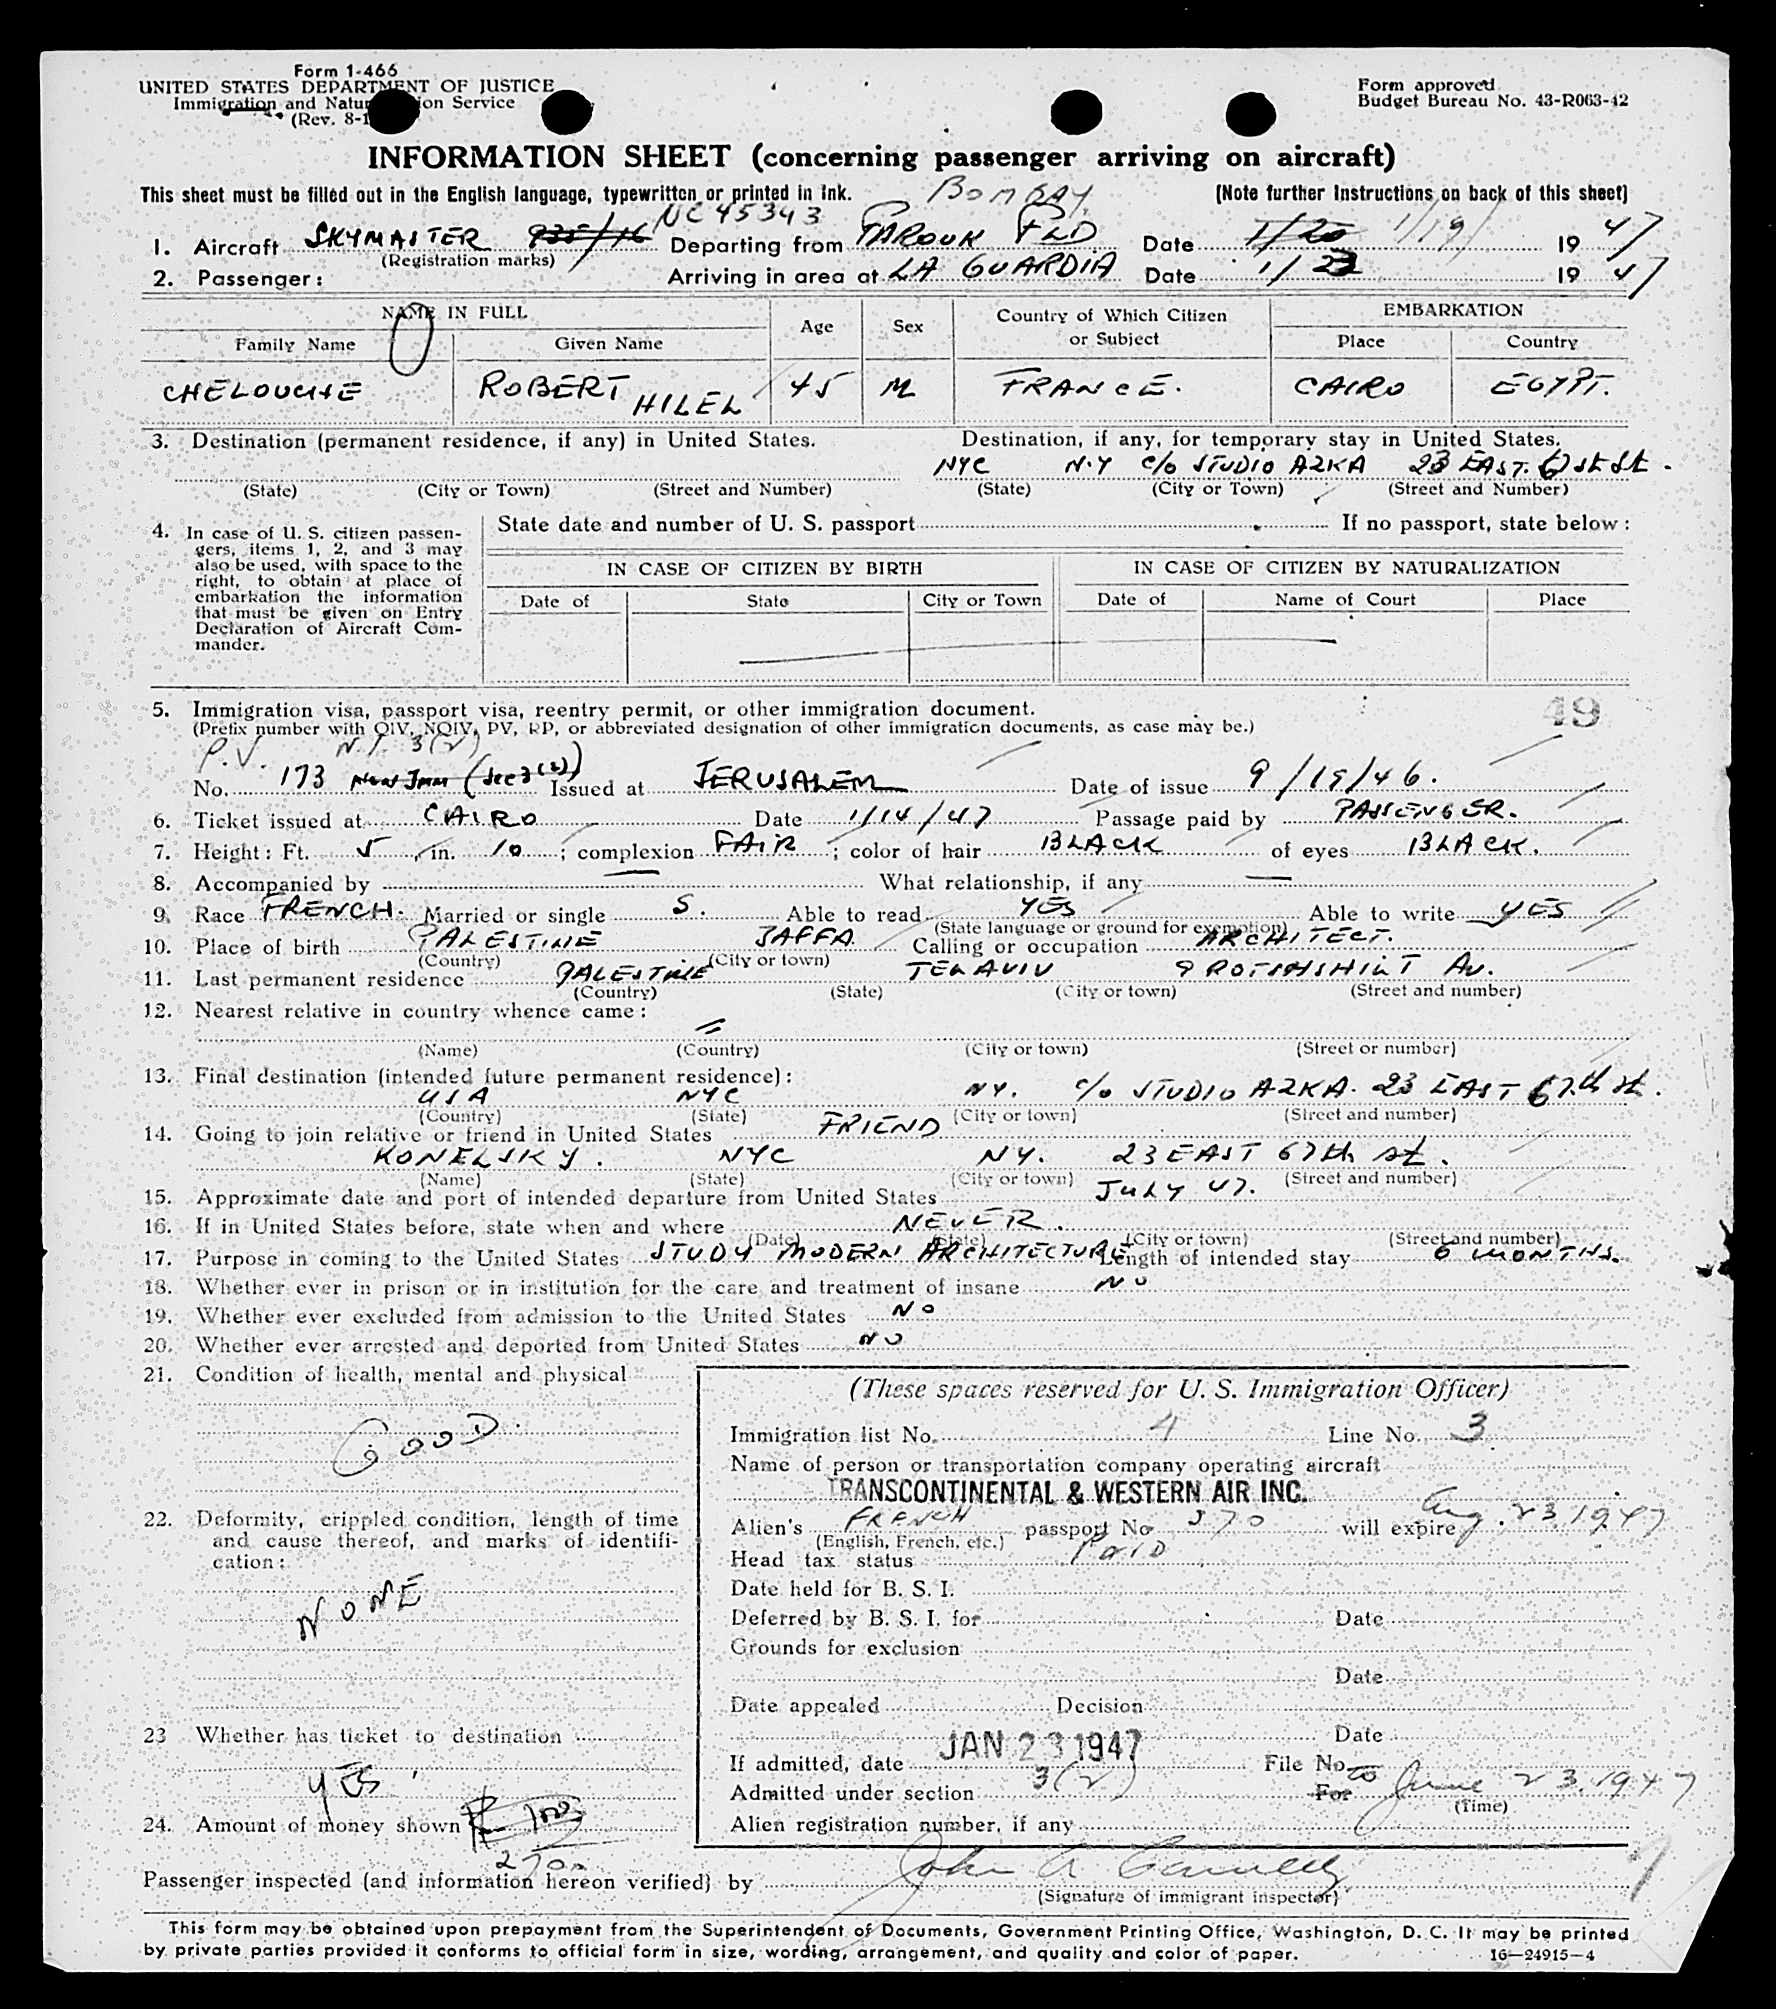 Form 1-466
UNITED STATES DEPARTMENT OF JUSTICE
Immigration and Natur ion Service
(Rev. 8-1
Form approved
Budget Bureau No. 43-R063-42
INFORMATION SHEET (concerning passenger arriving on aircraft)
This sheet must be filled out in the English language, typewritten or printed in ink.
(Note further instructions on back of this sheet)
BOMBAY
NC 45343
1. Aircraft SKYMASTER 935/16 Departing from FAROUK FLD Date 1/20 1/19/ 19 47
(Registration marks)
2. Passenger: Arriving in area at LA GUARDIA Date 1/23 19 47
NAME IN FULL Age Sex Country of Which Citizen or Subject EMBARKATION
Family Name Given Name Place Country
CHELOUCHE ROBERT HILEL 45 M FRANCE. CAIRO EGYPT.
3. Destination (permanent residence, if any) in United States. Destination, if any, for temporary stay in United States.
NYC N.Y c/o STUDIO AZKA 23 EAST. 67 st St.
(State) (City or Town) (Street and Number) (State) (City or Town) (Street and Number)
4. In case of U. S. citizen passen-
gers, items 1, 2, and 3 may
also be used, with space to the
right, to obtain at place of
embarkation the information
that must be given on Entry
Declaration of Aircraft Com-
mander.
State date and number of U. S. passport If no passport, state below:
IN CASE OF CITIZEN BY BIRTH IN CASE OF CITIZEN BY NATURALIZATION
Date of State City or Town Date of Name of Court Place
5. Immigration visa, passport visa, reentry permit, or other immigration document.
49
(Prefix number with QIV, NQIV, PV, RP, or abbreviated designation of other immigration documents, as case may be.)
P.V. N.I. 3(2)
No. 173 Non Imm (Sec 3(2)) Issued at JERUSALEM Date of issue 9/19/46.
6. Ticket issued at CAIRO Date 1/14/47 Passage paid by PASSENGER.
7. Height: Ft. 5, in. 10; complexion FAIR; color of hair BLACK of eyes BLACK.
8. Accompanied by — What relationship, if any —
9. Race FRENCH. Married or single S. Able to read YES Able to write YES
(State language or ground for exemption)
10. Place of birth PALESTINE JAFFA Calling or occupation ARCHITECT.
(Country) (City or town)
11. Last permanent residence PALESTINE TEL AVIV 9 ROTSHSHILT Av.
(Country) (State) (City or town) (Street and number)
12. Nearest relative in country whence came:
(Name) (Country) (City or town) (Street or number)
13. Final destination (intended future permanent residence):
USA NYC NY. c/o STUDIO AZKA. 23 EAST 67th st.
(Country) (State) (City or town) (Street and number)
14. Going to join relative or friend in United States FRIEND
KONELSKY. NYC NY. 23 EAST 67th st.
(Name) (State) (City or town) (Street and number)
15. Approximate date and port of intended departure from United States JULY 47.
16. If in United States before, state when and where NEVER.
(Date) (State) (City or town) (Street and number)
17. Purpose in coming to the United States STUDY MODERN ARCHITECTURE Length of intended stay 6 MONTHS.
18. Whether ever in prison or in institution for the care and treatment of insane NO
19. Whether ever excluded from admission to the United States NO
20. Whether ever arrested and deported from United States NO
21. Condition of health, mental and physical
GOOD.
22. Deformity, crippled condition, length of time
and cause thereof, and marks of identifi-
cation:
NONE
23 Whether has ticket to destination
YES
24. Amount of money shown
250
(These spaces reserved for U. S. Immigration Officer)
Immigration list No. 4 Line No. 3
Name of person or transportation company operating aircraft
TRANSCONTINENTAL & WESTERN AIR INC.
Alien's FRENCH passport No 570 will expire Aug. 23 1947
(English, French, etc.)
Head tax status Paid
Date held for B. S. I.
Deferred by B. S. I. for Date
Grounds for exclusion
Date
Date appealed Decision
Date
If admitted, date JAN 23 1947 File No.
Admitted under section 3(2) For to June 23. 1947
(Time)
Alien registration number, if any
Passenger inspected (and information hereon verified) by John A
(Signature of immigrant inspector)
This form may be obtained upon prepayment from the Superintendent of Documents, Government Printing Office, Washington, D. C. It may be printed
by private parties provided it conforms to official form in size, wording, arrangement, and quality and color of paper.
16—24915-4